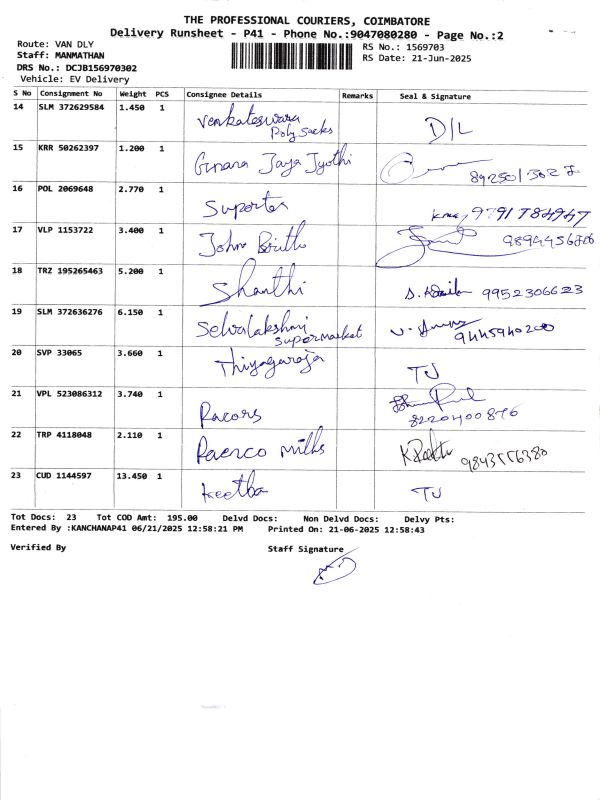 THE PROFESSIONAL COURIERS, COIMBATORE
Delivery Runsheet - P41 - Phone No.:9047080280 - Page No.:2
Route: VAN DLY
Staff: MANMATHAN
DRS No.: DCJB156970302
Vehicle: EV Delivery
RS No.: 1569703
RS Date: 21-Jun-2025
S No Consignment No Weight PCS Consignee Details Remarks Seal & Signature
14 SLM 372629584 1.450 1 Venkateswara Poly Sacks D/L
15 KRR 50262397 1.200 1 Gnana Jaya Jyothi
16 POL 2069648 2.770 1 Suporter 9791784947
17 VLP 1153722 3.400 1 John 9894456806
18 TRZ 195265463 5.200 1 Shanthi 9952306623
19 SLM 372636276 6.150 1 Selvalakshmi Supermarket 9445940200
20 SVP 33065 3.660 1 Thiyagaraja TJ
21 VPL 523086312 3.740 1 Racors 8220400876
22 TRP 4118048 2.110 1 milks
23 CUD 1144597 13.450 1 Keetha TJ
Tot Docs: 23 Tot COD Amt: 195.00 Delvd Docs: Non Delvd Docs: Delvy Pts:
Entered By :KANCHANAP41 06/21/2025 12:58:21 PM Printed On: 21-06-2025 12:58:43
Verified By Staff Signature